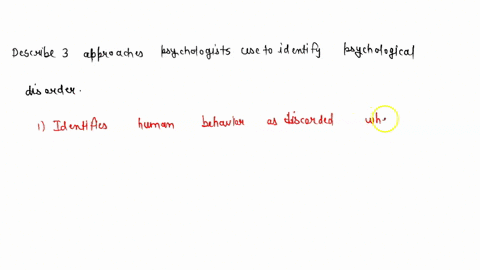 Describe 3 approaches psychologists use to identify psychological
disorder.
1) Identifies human behavior as discorded wh